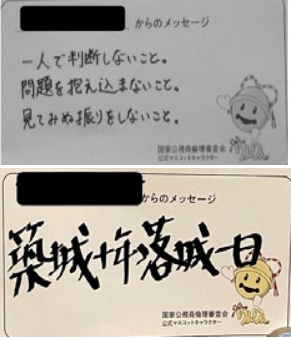 からのメッセージ
一人で判断しないこと。
問題を抱え込まないこと。
見てみぬ振りをしないこと。
国家公務員倫理審査会
公式マスコットキャラクター
からのメッセージ
築城十年落城一日
国家公務員倫理審査会
公式マスコットキャラクター